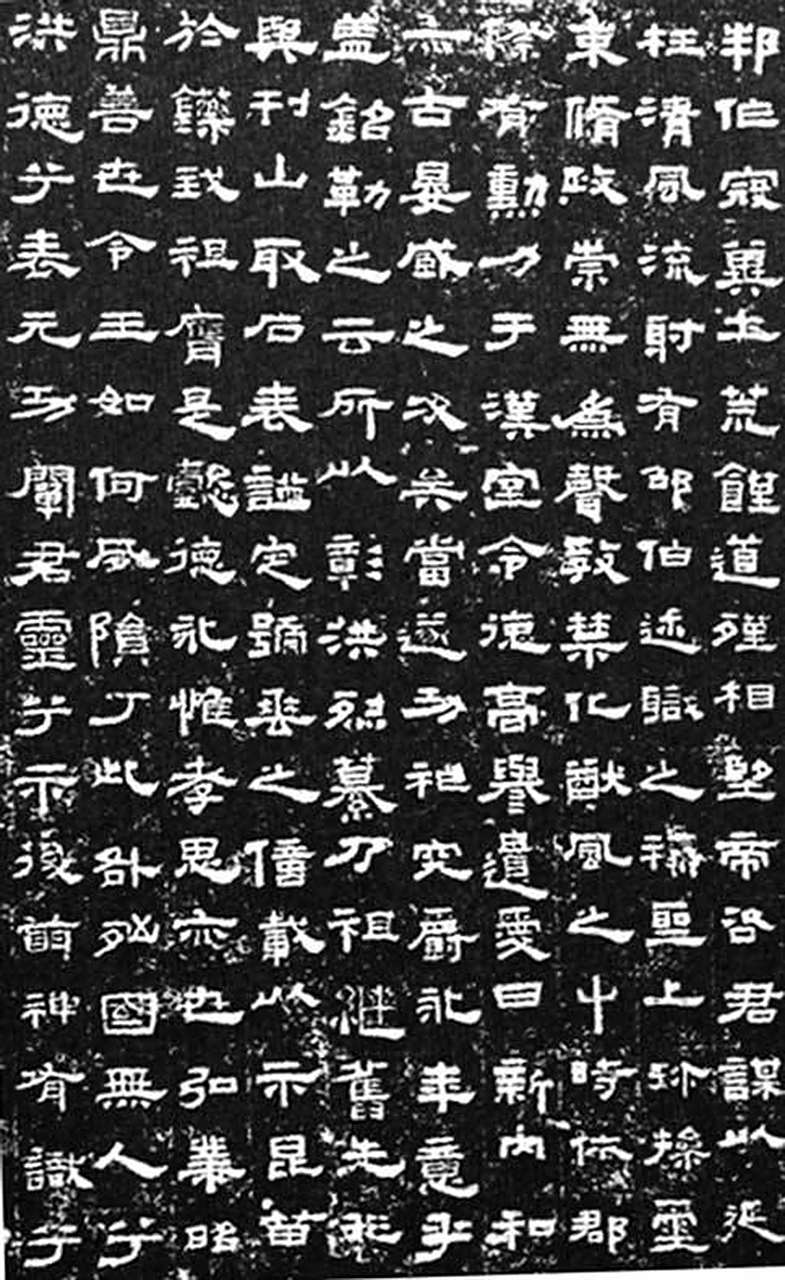 邦作寇冀土荒饉道殣相望帝咨君謀以延
拄清風流射有邵伯述職之稱聖上珍操璽
柬脩政崇無為聲教禁化猷風之中時依郡
除有勳力于漢室令德高譽遺愛日新內和
亡古晏臧之次矣當遂功祀究爵永年意乎
蓋銘勒之云所以彰洪烈纂乃祖繼舊先非
與刊山取石表謚定號垂之億載以示昆苗
於鑠我祖膺是懿德永惟孝思亦世弘業昭
鼎善世令王如何夙隕丁此咎殃國無人兮
洪德兮表元功闡君靈兮示後萌神有識兮